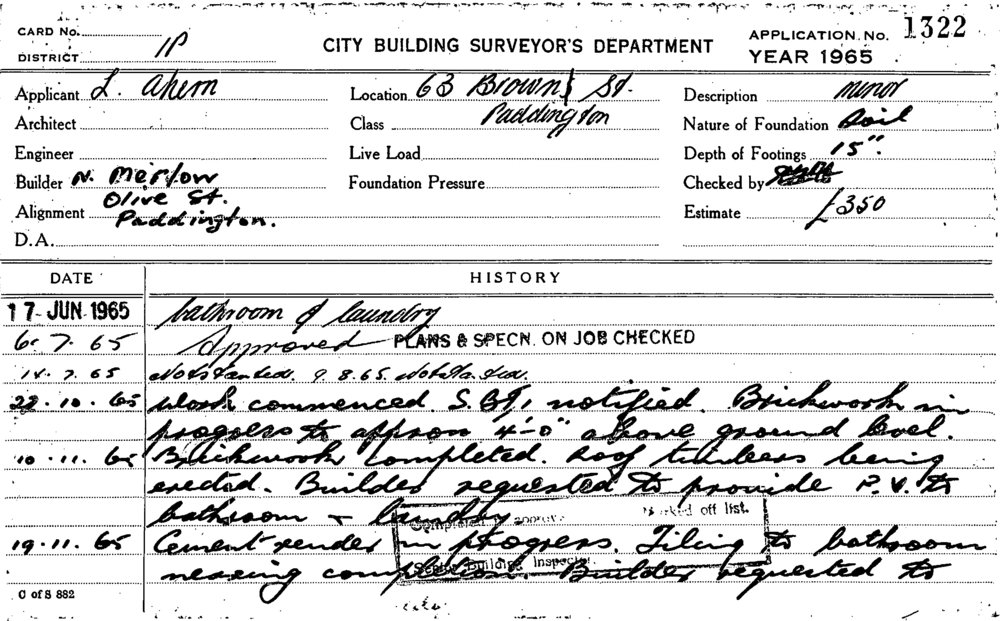 CARD No.
DISTRICT 1P
CITY BUILDING SURVEYOR'S DEPARTMENT
APPLICATION No. 1322
YEAR 1965
Applicant L. Ahern
Location 63 Brown St.
Description minor
Architect
Class Paddington
Nature of Foundation Soil
Engineer
Live Load
Depth of Footings 15".
Builder N. Merlow
Foundation Pressure
Checked by
Olive St.
Alignment Paddington.
Estimate £350
D.A.
DATE HISTORY
17 JUN 1965 bathroom & laundry
6. 7. 65 Approved PLANS & SPECN. ON JOB CHECKED
14. 7. 65 Not started. 9.8.65. Not started.
22. 10. 65 Work commenced. S.B.I. notified. Brickwork in
progress to approx 4'-0" above ground level.
10. 11. 65 Brickwork completed. Roof timbers being
erected. Builder requested to provide P.V. to
bathroom & laundry
approve off list.
19. 11. 65 Cement render in progress. Tiling to bathroom
Building Inspector
nearing completion. Builder requested to
C of S 882